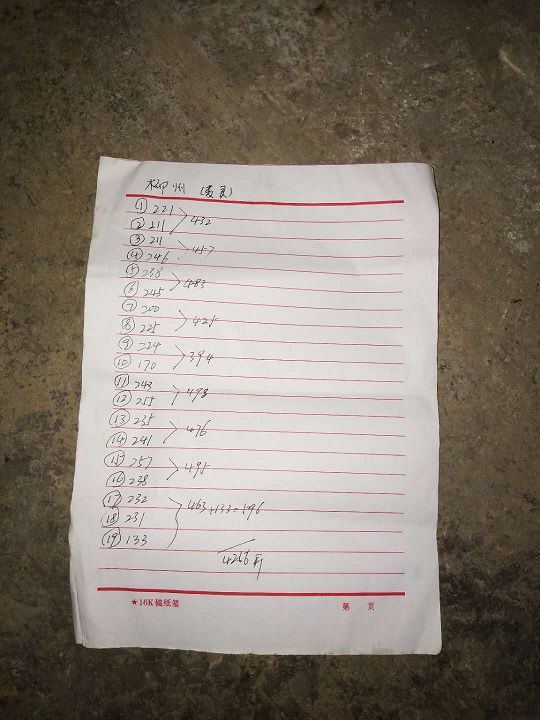 柳州 (袁灵)
① 221
② 211 > 432
③ 211
④ 246 > 457
⑤ 238
⑥ 245 > 483
⑦ 200
⑧ 225 > 425
⑨ 224
⑩ 170 > 394
⑪ 243
⑫ 255 > 498
⑬ 235
⑭ 241 > 476
⑮ 257
⑯ 238 > 495
⑰ 232
⑱ 231 } 463+133=596
⑲ 133
4256斤
★16K稿纸笺 第 页